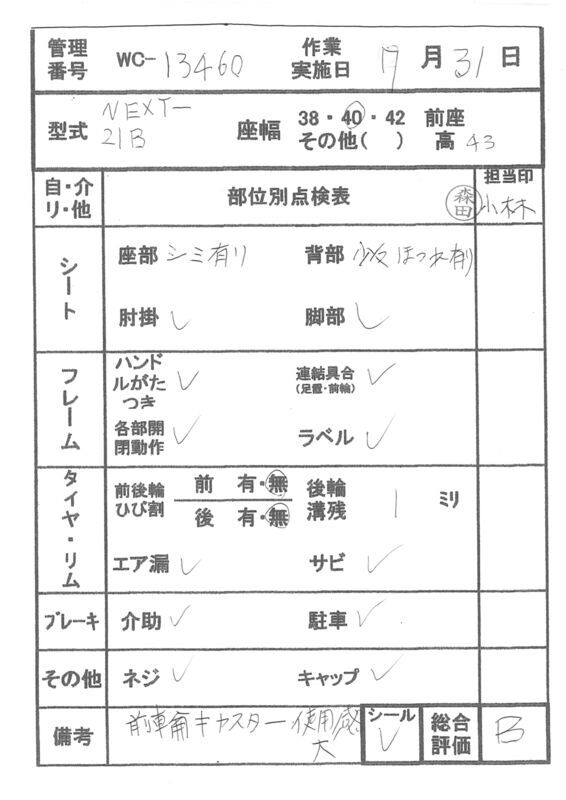 管理番号 WC-13460 作業実施日 17月31日
型式 NEXT-21B 座幅 38・40・42 その他( ) 前座高 43
自・介リ・他 部位別点検表 森田 担当印 小林
シート 座部 シミ有り 背部 ほつれ有り
肘掛 ✓ 脚部 ✓
フレーム ハンドルがたつき ✓ 連結具合(足置・前輪) ✓
各部開閉動作 ✓ ラベル ✓
タイヤ・リム 前後輪ひび割 前 有・無 後輪溝残 1 ミリ
後 有・無
エア漏 ✓ サビ ✓
ブレーキ 介助 ✓ 駐車 ✓
その他 ネジ ✓ キャップ ✓
備考 前車輪キャスター使用感大 シール ✓ 総合評価 B